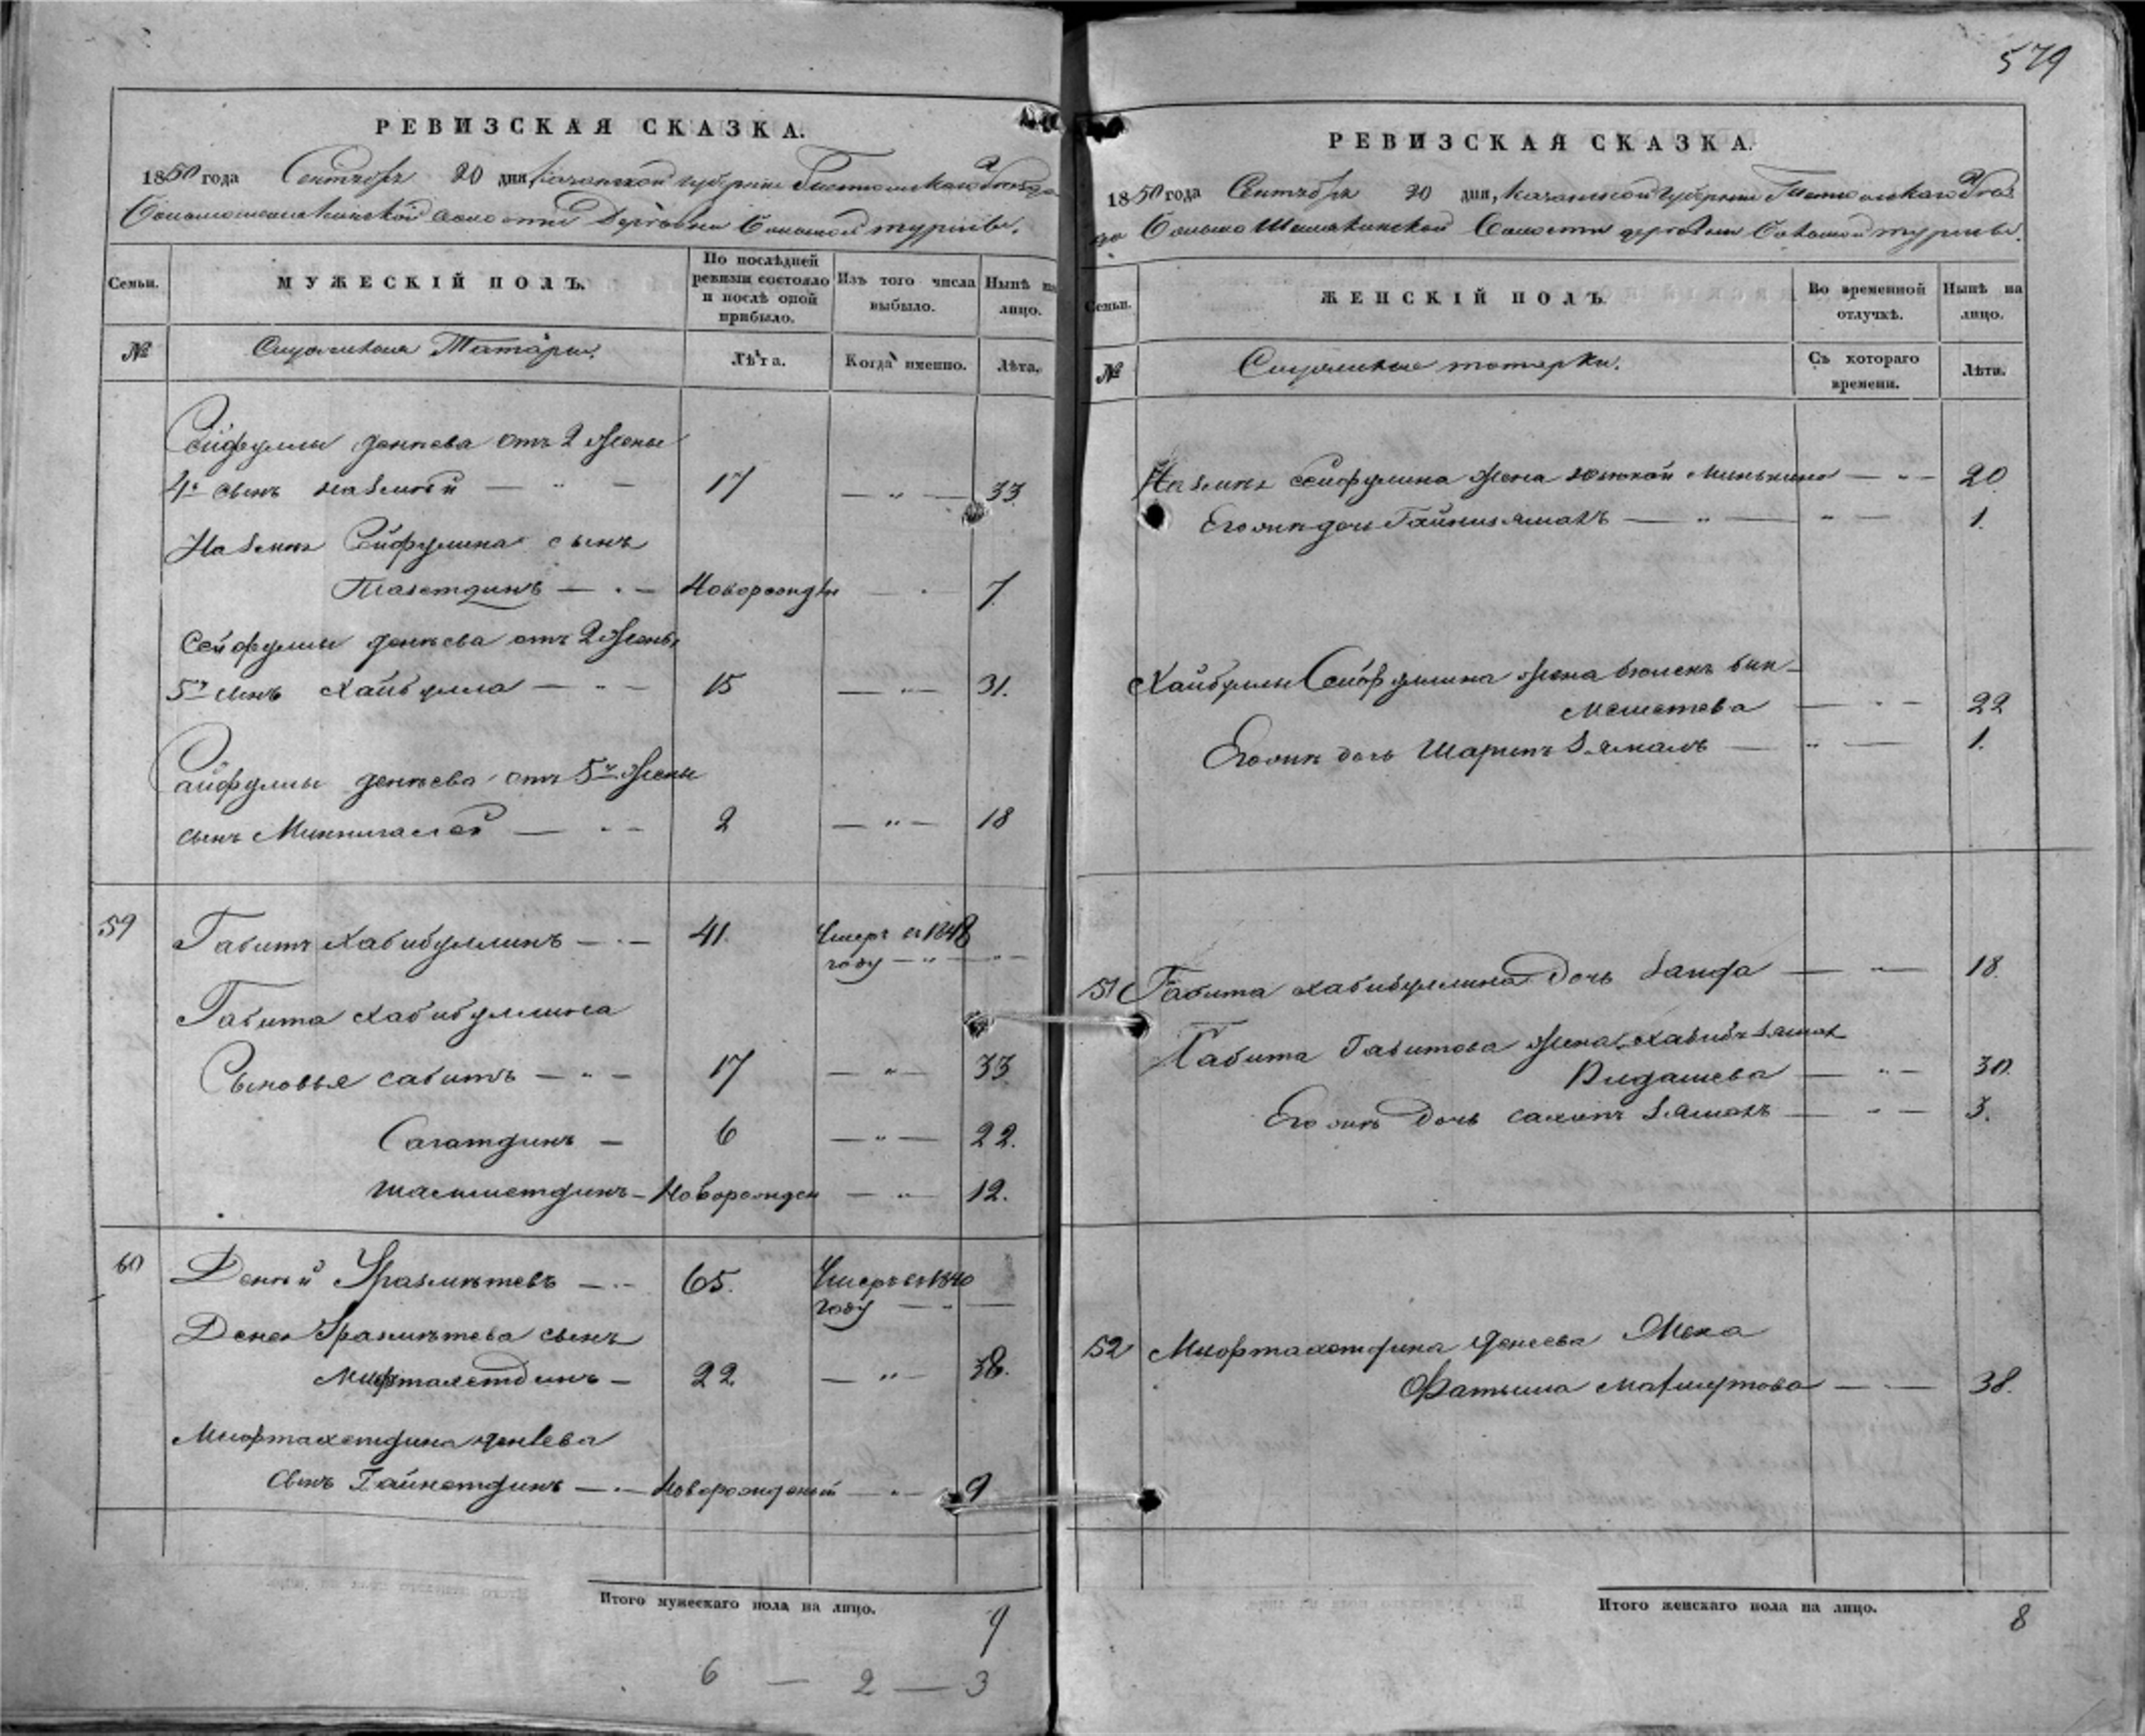 579
РЕВИЗСКАЯ СКАЗКА.
1850 года Сентября 20 дня, Казанской губернии Тетюшскаго уезда
Большешемякинской волости Деревни Большой турмы.
Семьи.
МУЖЕСКІЙ ПОЛЪ.
По послѣдней ревизіи состояло и послѣ оной прибыло.
Изъ того числа выбыло.
Нынѣ на лицо.
№
Служилыя Татары.
Лѣта.
Когда именно.
Лѣта.
Сейфуллы денеева отъ 2 жены
4й сынъ 17 — „ — 33
Сейфулина сынъ
Тазетдинъ — „ — Новорожден 7
Сейфуллы денеева отъ 2 жены
5й сынъ Хайбулла — „ — 15 — „ — 31.
Сайфуллы денеева отъ 5й жены
сынъ Миннигалей — „ — 2 — „ — 18
59 Габитъ Хабибуллинъ — „ — 41. Умеръ въ 1848
году — „ —
Габита Хабибуллина
Сыновья сабитъ — „ — 17 — „ — 33
Сагатдинъ — 6 — „ — 22.
шамшетдинъ — Новорожден — „ — 12.
60 Деней Уразметевъ — „ — 65. Умеръ въ 1840
году — „ —
Денея Уразметева сынъ
Мифтахетдинъ — 22. — „ — 38.
Мифтахетдина денеева
сынъ Гайнетдинъ — „ — Новорожденый — „ — 9
Итого мужескаго пола на лицо.
9
6 — 2 — 3
РЕВИЗСКАЯ СКАЗКА.
1850 года Сентября 20 дня, Казанской губерніи Тетюшскаго уез
да Большо Шемякинской Волости деревни Большой турмы.
Семьи.
ЖЕНСКІЙ ПОЛЪ.
Во временной отлучкѣ.
Нынѣ на лицо.
№
Служилые татарки.
Съ котораго времени.
Лѣта.
Сейфулина жена — „ — 20.
Его жъ дочь Гайнизямалъ — „ — „ — 1.
Хайбуллы Сейфуллина жена бик-
меметева — „ — 22
Его жъ дочь Шарипъ Зямалъ — „ — 1.
51 Габита Хабибуллина Дочь Заифа — „ — 18.
Сабита Габитова жена Хабибъ Зямал
— „ — 30.
Его жъ Дочь сахипъ Зямалъ — „ — 3.
52 Мифтахетдина денеева Жена
Фатыма Махмутова — „ — 38.
Итого женскаго пола на лицо.
8